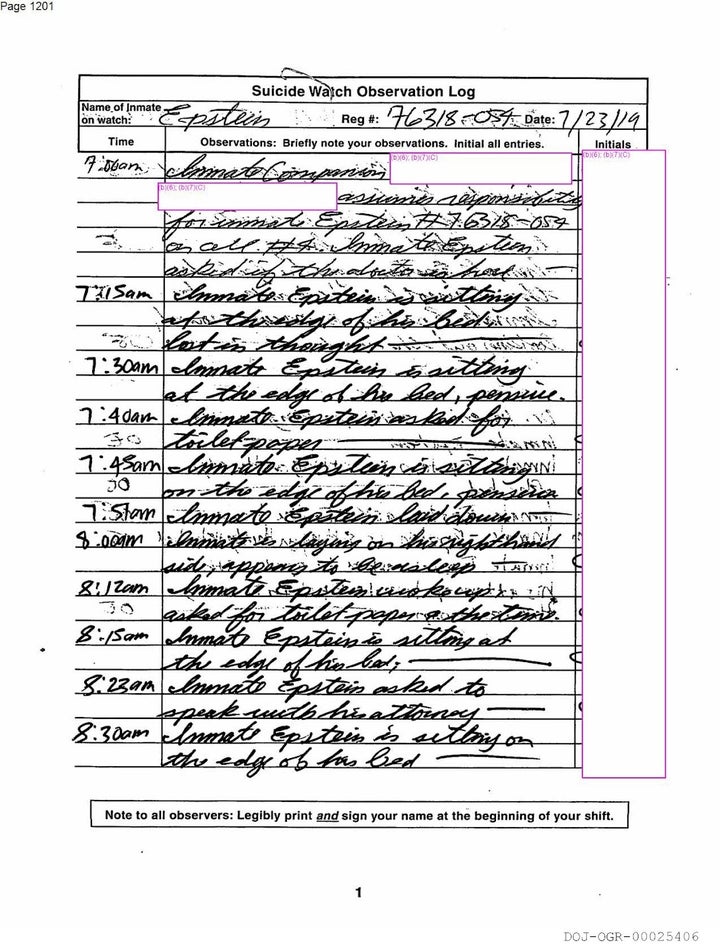 Page 1201
Suicide Watch Observation Log
Name of Inmate on watch: Epstein Reg #: 76318-054 Date: 7/23/19
Time Observations: Briefly note your observations. Initial all entries. Initials
7:00am Inmate Companion (b)(6); (b)(7)(C) (b)(6); (b)(7)(C)
(b)(6); (b)(7)(C) assumes responsibility
for inmate Epstein # 76318-054
on cell #4. Inmate Epstein
asked if the doctor is here
7:15am Inmate Epstein is sitting
at the edge of his bed
lost in thought
7:30am Inmate Epstein is sitting
at the edge of his bed, pensive.
7:40am Inmate Epstein asked for
toilet paper
7:45am Inmate Epstein is sitting
on the edge of his bed, pensive
7:51am Inmate Epstein laid down
8:00am Inmate is laying on his right hand
side, appears to be asleep
8:12am Inmate Epstein woke up
asked for toilet paper & the time.
8:15am Inmate Epstein is sitting at
the edge of his bed;
8:23am Inmate Epstein asked to
speak with his attorney
8:30am Inmate Epstein is sitting on
the edge of his bed
Note to all observers: Legibly print and sign your name at the beginning of your shift.
1
DOJ-OGR-00025406